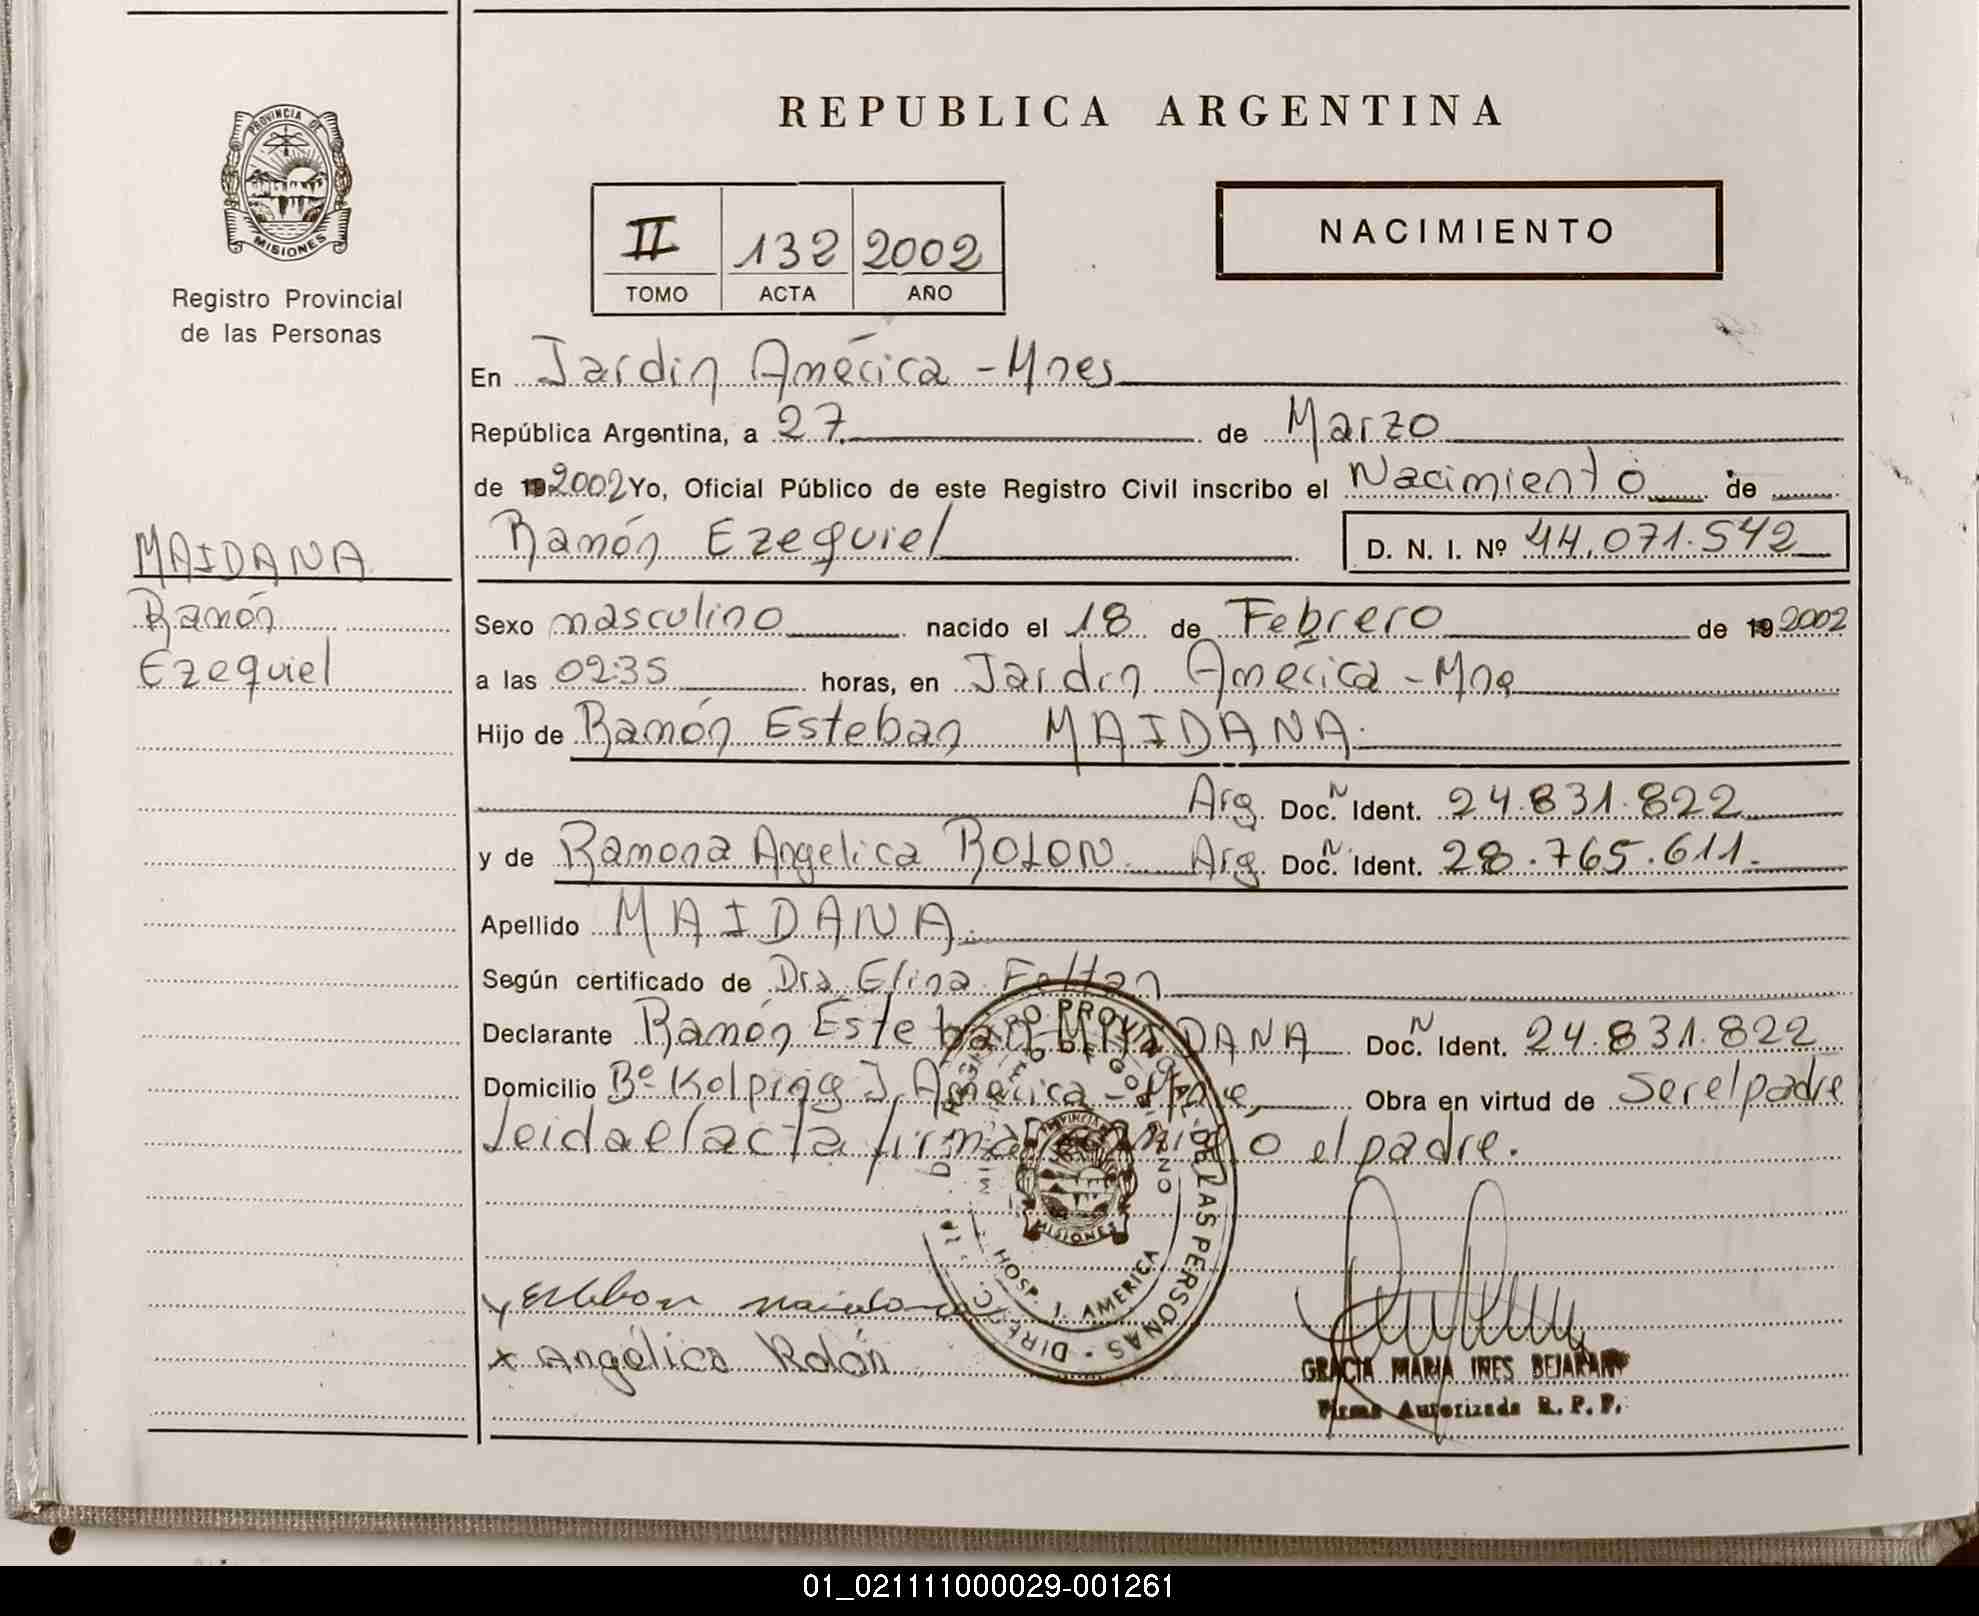 REPUBLICA ARGENTINA
PROVINCIA DE
MISIONES
Registro Provincial
de las Personas
II 132 2002
TOMO ACTA AÑO
NACIMIENTO
En Jardín América - Mnes
República Argentina, a 27 de Marzo
de 19 2002 Yo, Oficial Público de este Registro Civil inscribo el Nacimiento de
Ramón Ezequiel D. N. I. Nº 44.071.542
MAIDANA
Ramón
Ezequiel
Sexo masculino nacido el 18 de Febrero de 19 2002
a las 02:35 horas, en Jardín América - Mne
Hijo de Ramón Esteban MAIDANA.
Arg. Doc. N Ident. 24.831.822
y de Ramona Angelica ROLON. Arg. Doc. N Ident. 28.765.611.
Apellido MAIDANA.
Según certificado de Dra Elina Feltan
Declarante Ramón Esteban MAIDANA Doc. N Ident. 24.831.822
Domicilio Bº Kolping J. América - Mne, Obra en virtud de Ser el padre
Leida el acta firma conmigo el padre.
DIREC. REGISTRO PROVINCIAL DE LAS PERSONAS
MINISTERIO DE GOBIERNO
PROVINCIA
MISIONES
HOSP. J. AMERICA
Esteban maidana
x Angélica Rolón
GRACIA MARIA INES BEJARANO
Firma Autorizada R. P. P.
01_021111000029-001261